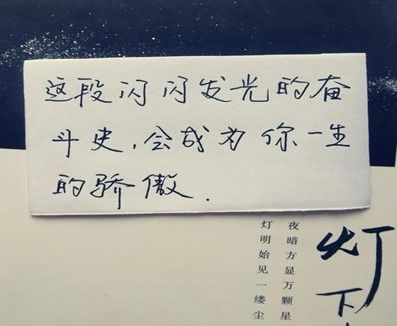 这段闪闪发光的奋
斗史,会成为你一生
的骄傲.
夜暗方显万颗星
灯明始见一缕尘
灯下